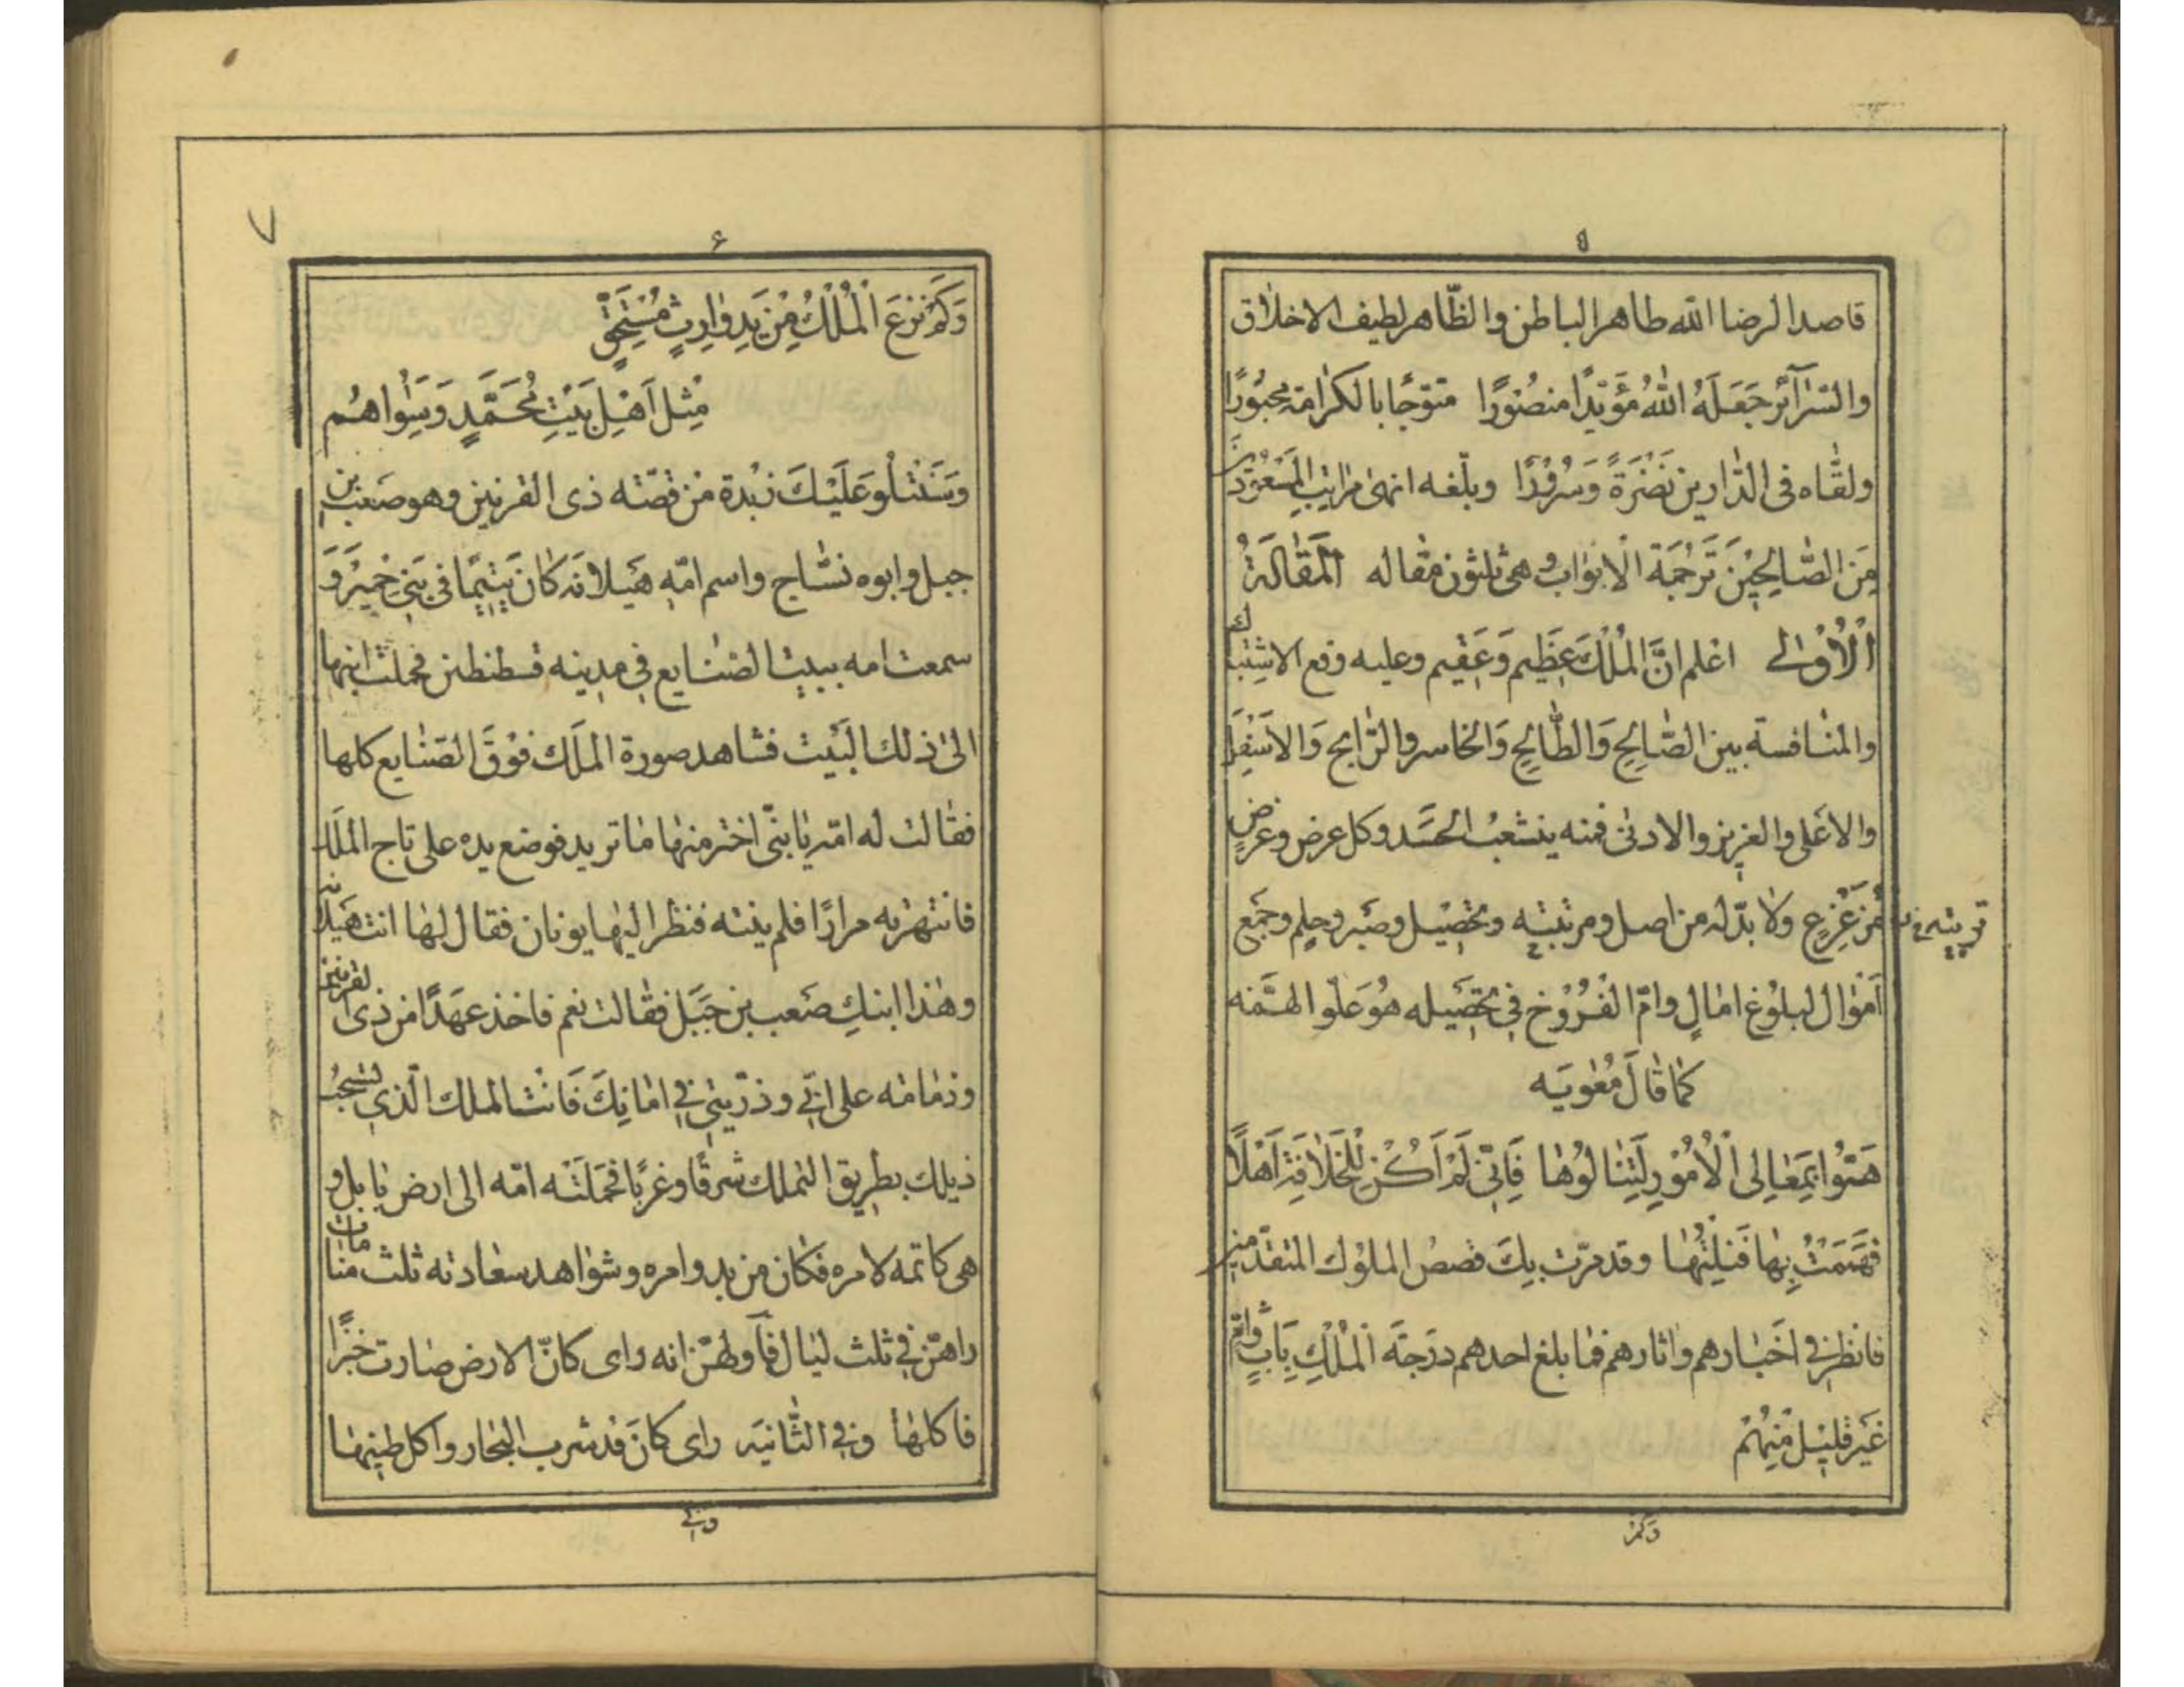 ٥
قاصدا لرضا الله طاهر الباطن والظّاهر لطيف الاخلاق
والسّرآئر جَعَلَهُ اللهُ مؤيّدًا منصُورًا متوّجًا بالكرامة محبُورًا
ولقّاه فى الدّارين نَضْرَةً وَسُرُورًا وبلّغه انهى مراتِب
مِنَ الصّالِحِيْنَ تَرْجُمَة الْاَبْوَاب وهى ثلثون مقاله اَلْمَقٰالَةُ
اَلْاُوْلىٰ اعلم انَّ الْمُلْكَ عَظِيم وَعَقِيم وعليه وقع الاشِتباك
والمنافسة بين الصّالِحِ وَالطّالِحِ وَالخاسر والرّابح وَالاسْفَل
والاعلى والعزيز والادنى فمنه ينشعبُ الحسَد وكل عرض وغرض
ولا بدّ له من اصل ومرتبته وتحصيل وصَبر وحلم وجَمع
اَمْوال لبلوُغ امالٍ وامّ الفُرُوْخ فِي تحصيله هُوَ عَلوّ الهمّة
كمٰا قٰالَ مُعٰويَه
هَمّوا بِمَعٰالِى الْاُمُوْرِ لِتَنٰالُوُهٰا فَاِنّى لَمْ اَكُنْ لِلْخِلٰافَةِ اَهْلًا
فَهَمَمْتُ بِهٰا فَنِلْتُهٰا وقد مرّت بِكَ قصصُ الملوُك المتقدّمين
فانظر في اَخبٰارهم واثارهم فمٰا بلغ احدهم دَرَجَةَ الْمُلْكِ بِاَبٍ وامّ
غَير قليْل مِنهُمْ
وَكَمْ
٦
وَكَمْ نزعَ الْمُلْكُ مِنْ يَدِ وٰارِثٍ مُسْتَحِقٍّ
مِثل اَهْلِ بَيْتِ مُحَمَّدٍ وَسِوٰاهُم
وَسَنَتْلُو عَلَيْكَ نبْذة من قصّته ذى القرنين وهو صَعب بن
جبل وابوه نسّاج واسم امّه هَيلانه كٰان يَتيمًا فى بَنى حمير وَ
سمعت امه ببيت الصنٰايع فى مدينه قسطنطنن فحملت ابنها
الىٰ ذلك البَيْت فشاهد صورة الملَك فوْقَ الصّنايع كلها
فقالت له امّه يٰا بنّى اختر منها مٰا تريد فوضع يده على تاج الملَك
فانتهرته مرارًا فلم ينته فنظر اليها يونان فقال لهٰا انت هَيلانه
وهٰذا ابنكِ صَعب بن جَبَل فقالت نعم فاخذ عهَدًا من ذى القرنين
وذمٰامٰه على انّى وذرّيتى فِى امٰانِكَ فَانْت الملك الّذى
ذيلك بطريق التملك شرقًا وغربًا فحمَلَتْه امّه الى ارض بابل و
هى كاتمه لامره فكان من بدو امره وشوٰاهد سعٰادته ثلث منٰامٰات
راهنّ فى ثلث ليٰال فآولهنّ انه راى كانّ الارض صٰارت خبزًا
فاكلهٰا وفى الثّانيَه راى كانَ قد شرب البحار واكل طينهٰا
وفى